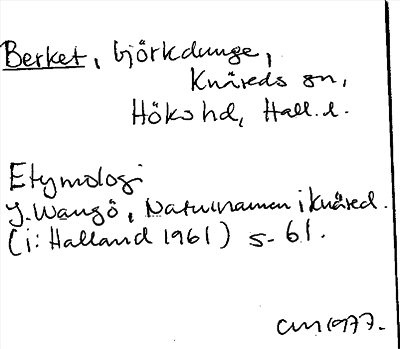 Berket, björkdunge,
Knäreds sn,
Höks hd, Hall. l.
Etymologi
J. Wangö, Naturnamen i Knäred.
(i: Halland 1961) s. 61.
CM 1977.